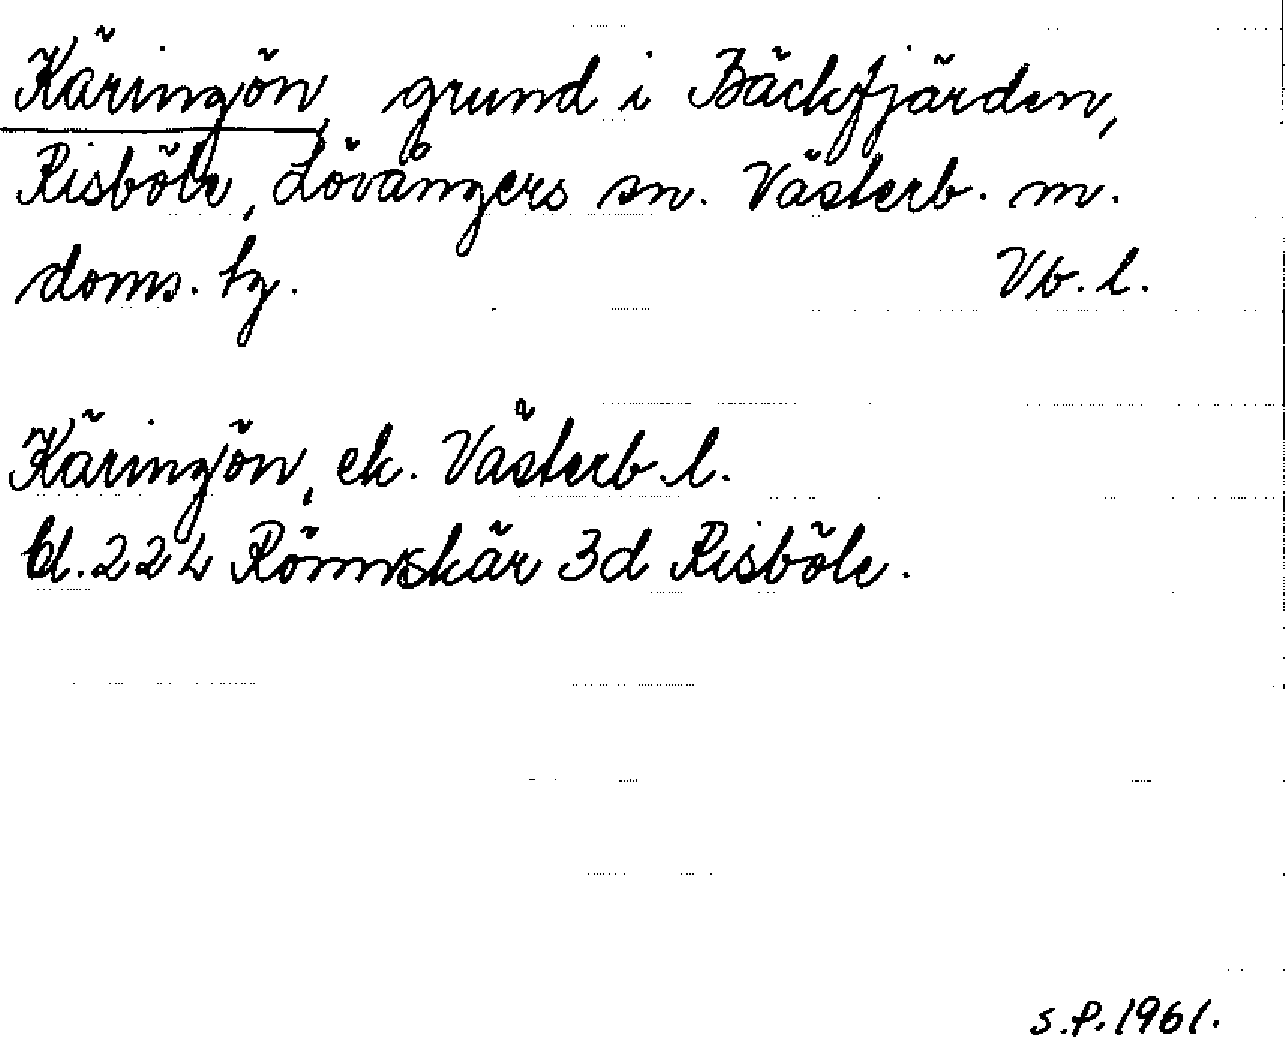 Käringön, grund i Bäckfjärden,
Risböle, Lövångers sn. Västerb. m.
doms. tg. Vb. l.
Käringön, ek. Västerb. l.
bl. 22 L Rönnskär 3d Risböle.
S.P. 1961.